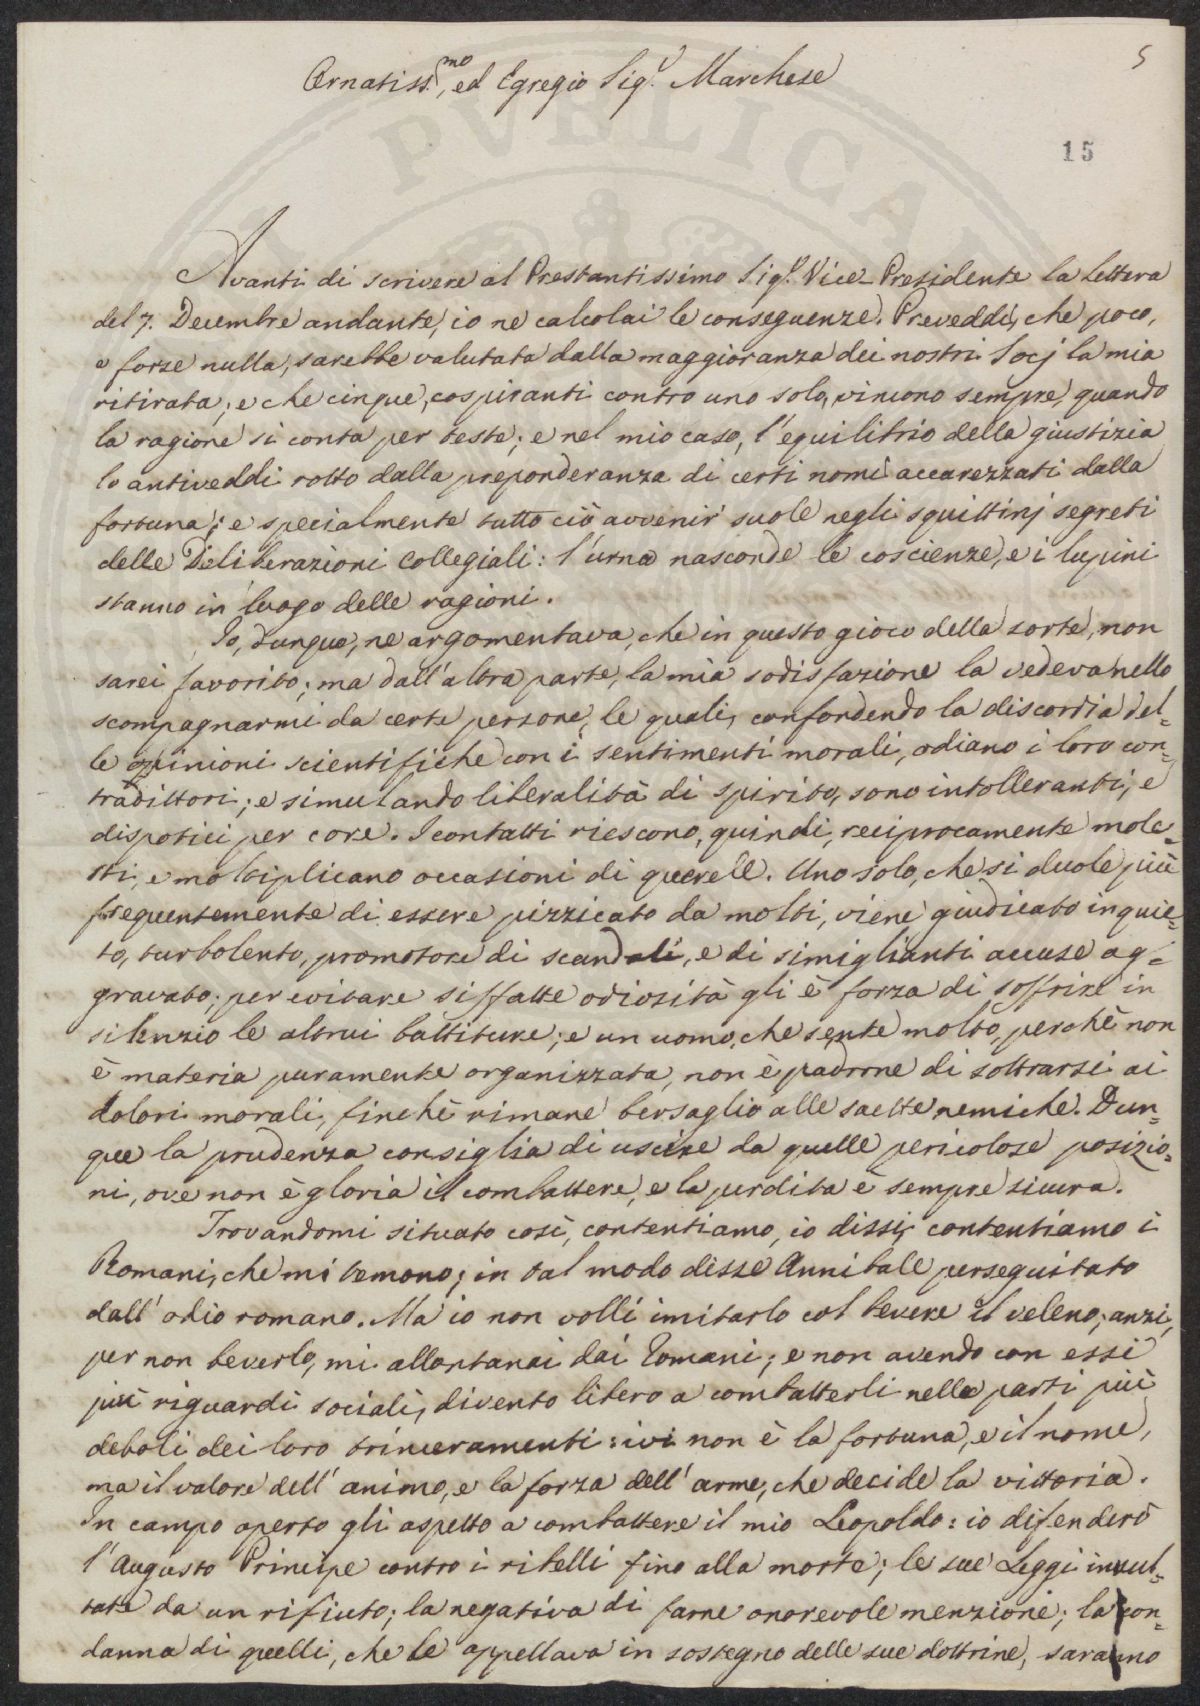 5
Ornatiss.mo, ed Egregio Sig.r Marchese
15
Avanti di scrivere al Prestantissimo Sig.r Vice-Presidente la lettera
del 7. Decembre andante, io ne calcolai le conseguenze. Preveddi, che poco,
o forse nulla, sarebbe valutata dalla maggioranza dei nostri Socj la mia
ritirata; e che cinque, cospiranti contro uno solo, vincono sempre, quando
la ragione si conta per teste; e nel mio caso, l'equilibrio della giustizia
lo antiveddi rotto dalla preponderanza di certi nomi accarezzati dalla
fortuna; e specialmente tutto ciò avvenir suole negli squittinj segreti
delle Deliberazioni Collegiali: l'urna nasconde le coscienze, e i lupini
stanno in luogo delle ragioni.
Io, dunque, ne argomentava, che in questo gioco della sorte, non
sarei favorito; ma dall'altra parte, la mia sodisfazione la vedeva nello
scompagnarmi da certe persone, le quali, confondendo la discordia del=
le opinioni scientifiche con i sentimenti morali, odiano i loro con=
tradittori; e simulando liberalità di spirito, sono intolleranti, e
dispotici per core. I contatti riescono, quindi, reciprocamente mole=
sti, e moltiplicano occasioni di querele. Uno solo, che si duole più
frequentemente di essere pizzicato da molti, viene giudicato inquie=
to, turbolento, promotore di scandali, e di simiglianti accuse ag=
gravato; per evitare siffatte odiosità gli è forza di soffrire in
silenzio le altrui battiture; e un uomo, che sente molto, perchè non
è materia puramente organizzata, non è padrone di sottrarsi ai
dolori morali, finchè rimane bersaglio alle saette nemiche. Dun=
que la prudenza consiglia di uscire da quelle pericolose posizio=
ni, ove non è gloria il combattere, e la perdita è sempre sicura.
Trovandomi situato così, contentiamo, io dissi, contentiamo i
Romani, che mi temono; in tal modo disse Annibale perseguitato
dall'odio romano. Ma io non volli imitarlo col bevere il veleno; anzi,
per non beverlo, mi allontanai dai Romani; e non avendo con essi
più riguardi sociali, divento libero a combatterli nelle parti più
deboli dei loro trinceramenti: ivi non è la fortuna, e il nome,
ma il valore dell'animo, e la forza dell'arme, che decide la vittoria.
In campo aperto gli aspetto a combattere il mio Leopoldo: io difenderò
l'Augusto Principe contro i ribelli fino alla morte; le sue Leggi insul=
tate da un rifiuto; la negativa di farne onorevole menzione; la con=
danna di quelli, che le appellava in sostegno delle sue dottrine, saranno